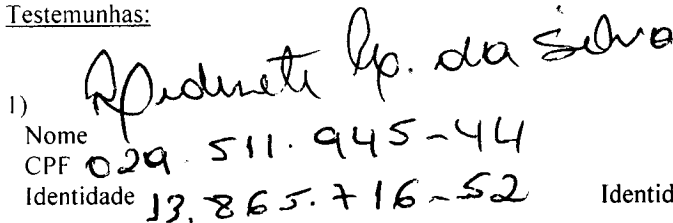 Testemunhas:
da Silva
1)
Nome
CPF 029.511.945-44
Identidade 13.865.716-52 Identid